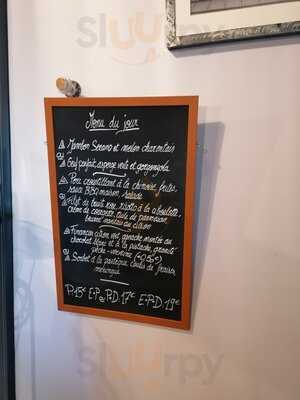 Sluurpy
Menu du jour
Jambon Serrano et melon charentais
ou
Œuf parfait, asperge verte et gorgonzola
Porc croustillant à la chinoise, frites,
sauce BBQ maison, salade
ou
Filet de truite rose, risotto à la ciboulette,
crème de tuile de parmesan,
citron
Financier citron vert, ganache montée au
chocolat blanc et à la pistache,
pêche-verveine
ou
Sorbet à la pastèque, coulis de fraises,
meringue
P:15€ E-P ou P-D:17€ E-P-D:19€
Sluurpy